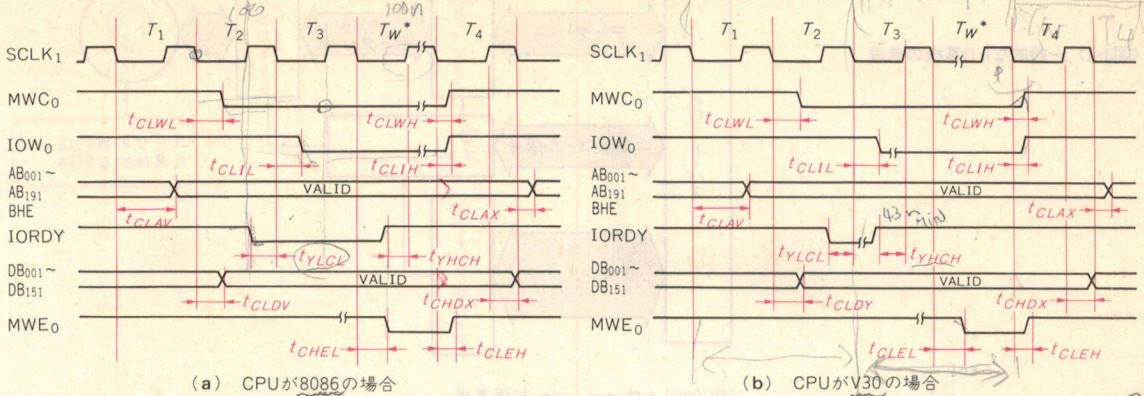 100
100n
T1 T2 T3 TW* T4
SCLK1
MWC0
tCLWL tCLWH
IOW0
tCLIL tCLIH
AB001~
AB191
VALID
BHE
tCLAV tCLAX
IORDY
tYLCL tYHCH
DB001~
DB151
VALID
tCLDV tCHDX
MWE0
tCHEL tCLEH
(a) CPUが8086の場合
T1 T2 T3 TW* T4
T4
SCLK1
MWC0
tCLWL tCLWH
IOW0
tCLIL tCLIH
AB001~
AB191
VALID
BHE
tCLAV tCLAX
43n Min
IORDY
tYLCL tYHCH
DB001~
DB151
VALID
tCLDY tCHDX
MWE0
tCLEL tCLEH
(b) CPUがV30の場合